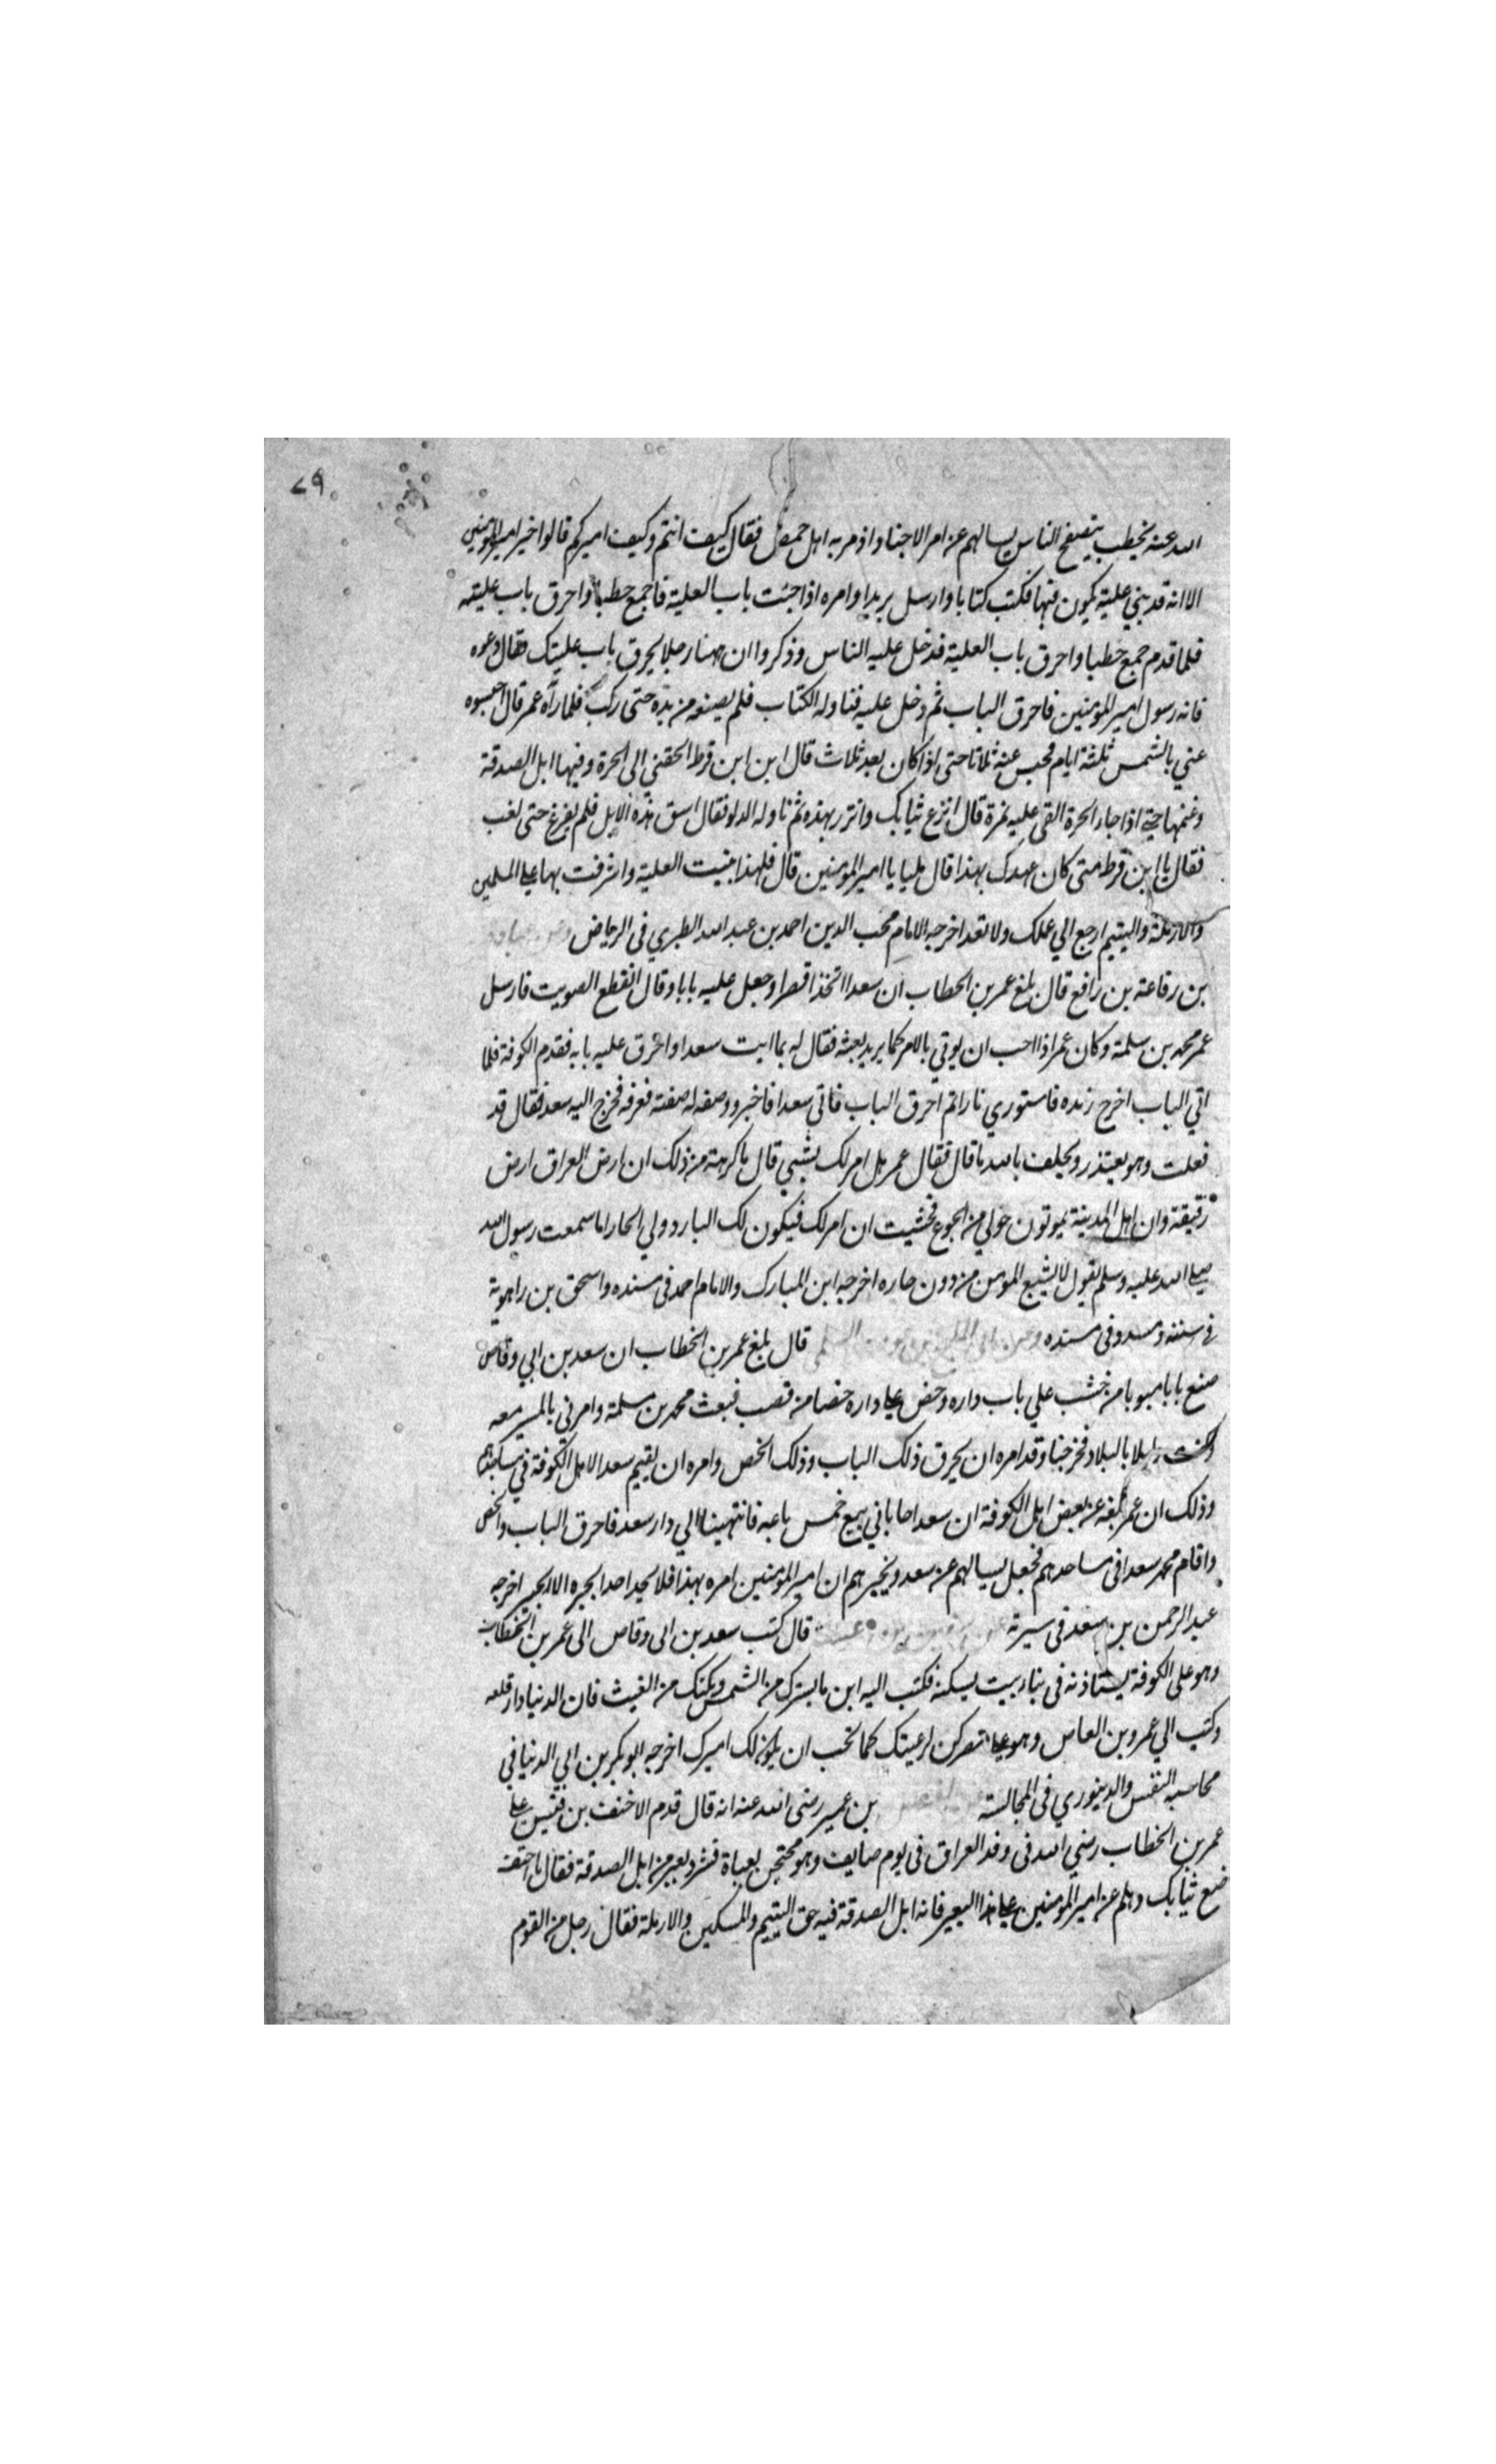 ٧٩
الله عنه يخطب يتصفح الناس يسالهم عن امر الاجناد اذ مر به اهل حمص فقال كيف انتم وكيف اميركم قالوا خير امير المومنين
الا انه قد بني علية يكون فيها فكتب كتابا وارسل بريدا وامره اذا جئت باب العلية فاجمع حطبا واحرق باب عليته
فلما قدم جمع حطبا واحرق باب العلية فدخل عليه الناس وذكروا ان ههنا رجلا يحرق باب عليتك فقال دعوه
فانه رسول امير المومنين فاحرق الباب ثم دخل عليه فناوله الكتاب فلم يضعه من يده حتى ركب فلما رآه عمر قال احبسوه
عني بالشمس ثلثة ايام فحبس عنه ثلاثا حتى اذا كان بعد ثلاث قال ابن ابن قرط الحقني الى الحرة وفيها ابل الصدقة
وغنمها حتى اذا جاء الحرة القى عليه نمرة قال انزع ثيابك واتزر بهذه ثم ناوله الدلو فقال اسق هذه الابل فلم يفرغ حتى لغب
فقال يا ابن قرط متى كان عهدك بهذا قال مليا يا امير المومنين قال فلهذا بنيت العلية واشرفت بها على المسلمين
والارملة واليتيم ارجع الي عملك ولا تعد اخرجه الامام محب الدين احمد بن عبد الله الطبري فى الرياض
بن رفاعة بن رافع قال بلغ عمر بن الخطاب ان سعدا اتخذ قصرا وجعل عليه بابا وقال انقطع الصويت فارسل
عمر محمد بن سلمة وكان عمر اذا احب ان يوتي بالامر كما يريد بعثه فقال له ايت سعدا واحرق عليه بابه فقدم الكوفة فلما
اتي الباب اخرج زنده فاستوري نارا ثم احرق الباب فاتي سعدا فاخبر ووصف له صفته فعرفه فخرج اليه سعد فقال قد
فعلت وهو يعتذر ويحلف بالله ما قال فقال عمر هل امر لك بشيي قال ما كرهت من ذلك ان ارض العراق ارض
رقيقة وان اهل المدينة يموتون حولي من الجوع فخشيت ان امر لك فيكون لك البارد ولي الحار اما سمعت رسول الله
صلى الله عليه وسلم يقول لا يشبع المومن من دون جاره اخرجه ابن المبارك والامام احمد فى مسنده واسحق بن راهوية
في سننه ومسدد فى مسنده قال بلغ عمر بن الخطاب ان سعد بن ابي وقاص
صنع بابا مبوبا من خشب علي باب داره وخص على داره خصا من قصب فبعث محمد بن مسلمة وامرني بالمسير معه
وكنت دليلا بالبلاد فخرجنا وقد امره ان يحرق ذلك الباب وذلك الخص وامره ان يقيم سعدا لاهل الكوفة في مساجدها
وذلك ان عمر بلغه عن بعض اهل الكوفة ان سعدا حابا في بيع خمس باعه فانتهينا الي دار سعد فاحرق الباب والخص
واقام محمد سعدا فى مساجدهم فجعل يسالهم عن سعد ويخبرهم ان امير المومنين امره بهذا فلا يجد احدا يخبره الا خيرا اخرجه
عبد الرحمن بن سعد فى سيرته قال كتب سعد بن ابى وقاص الى عمر بن الخطاب
وهو على الكوفة يستاذنه فى بناء بيت يسكنه فكتب اليه ابن ما يسترك من الشمس ويكنك من الغيث فان الدنيا دار قلعه
وكتب الي عمرو بن العاص وهو على مصر كن لرعيتك كما تحب ان يكون لك اميرك اخرجه ابو بكر بن ابي الدنيا في
محاسبه النفس والدينوري فى المجالسة بن عمير رضى الله عنه انه قال قدم الاحنف بن قيس على
عمر بن الخطاب رضي الله فى وفد العراق فى يوم صايف وهو محتجز بعباة فشرد بعير من ابل الصدقة فقال يا احنف
ضع ثيابك وهلم عن امير المومنين على هذا البعير فانه ابل الصدقة فيه حق اليتيم والمسكين والارملة فقال رجل من القوم